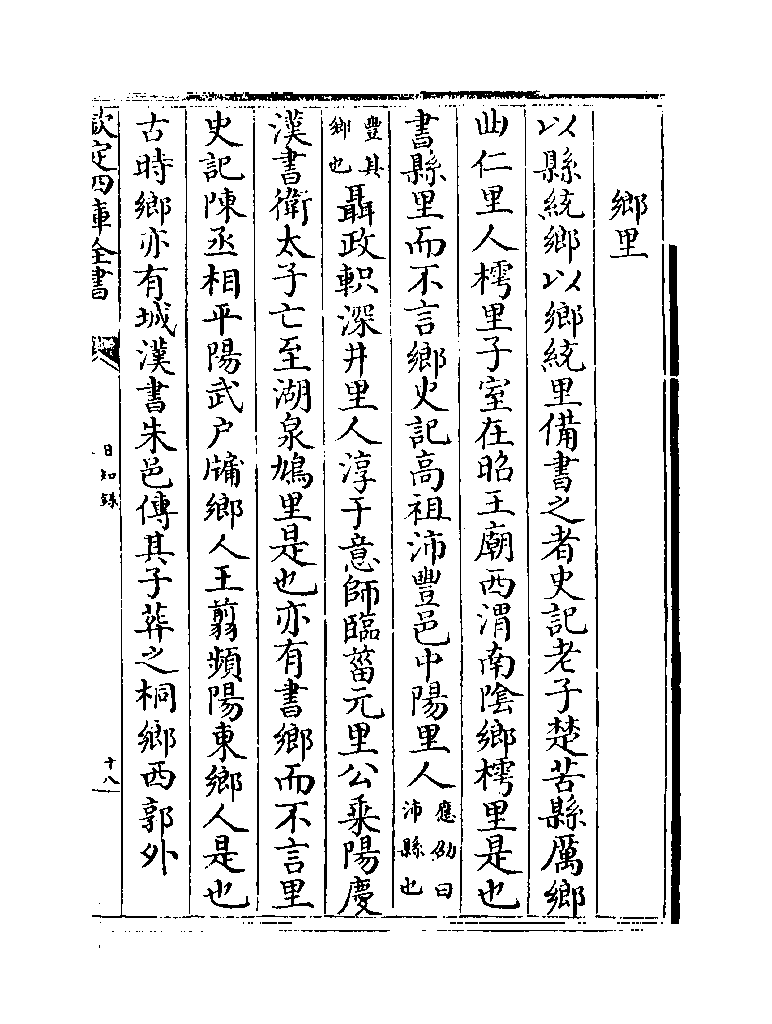 鄉里
以縣統鄉以鄉統里備書之者史記老子楚苦縣厲鄉
曲仁里人樗里子室在昭王廟西渭南陰鄉樗里是也
書縣里而不言鄉史記高祖沛豐邑中陽里人應劭曰沛縣也
豐其鄉也聶政軹深井里人淳于意師臨菑元里公乘陽慶
漢書衛太子亡至湖泉鳩里是也亦有書鄉而不言里
史記陳丞相平陽武户牖鄉人王翦頻陽東鄉人是也
古時鄉亦有城漢書朱邑傳其子葬之桐鄉西郭外
欽定四庫全書
日知録
十八